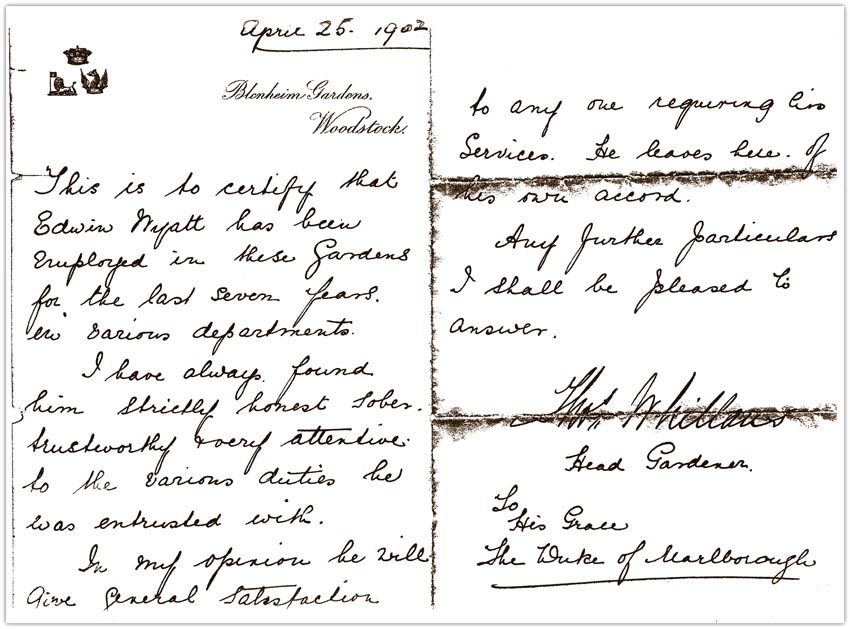 April 25. 1902
Blenheim Gardens,
Woodstock.
This is to certify that
Edwin Wyatt has been
Employed in these Gardens
for the last seven years.
in various departments.
I have always found
him strictly honest sober.
trustworthy & very attentive
to the various duties he
was entrusted with.
In my opinion he will
Give General Satisfaction
to any one requiring his
Services. He leaves here. of
his own accord.
Any further particulars
I shall be pleased to
answer.
Thos Whillans
Head Gardener.
To
His Grace
The Duke of Marlborough